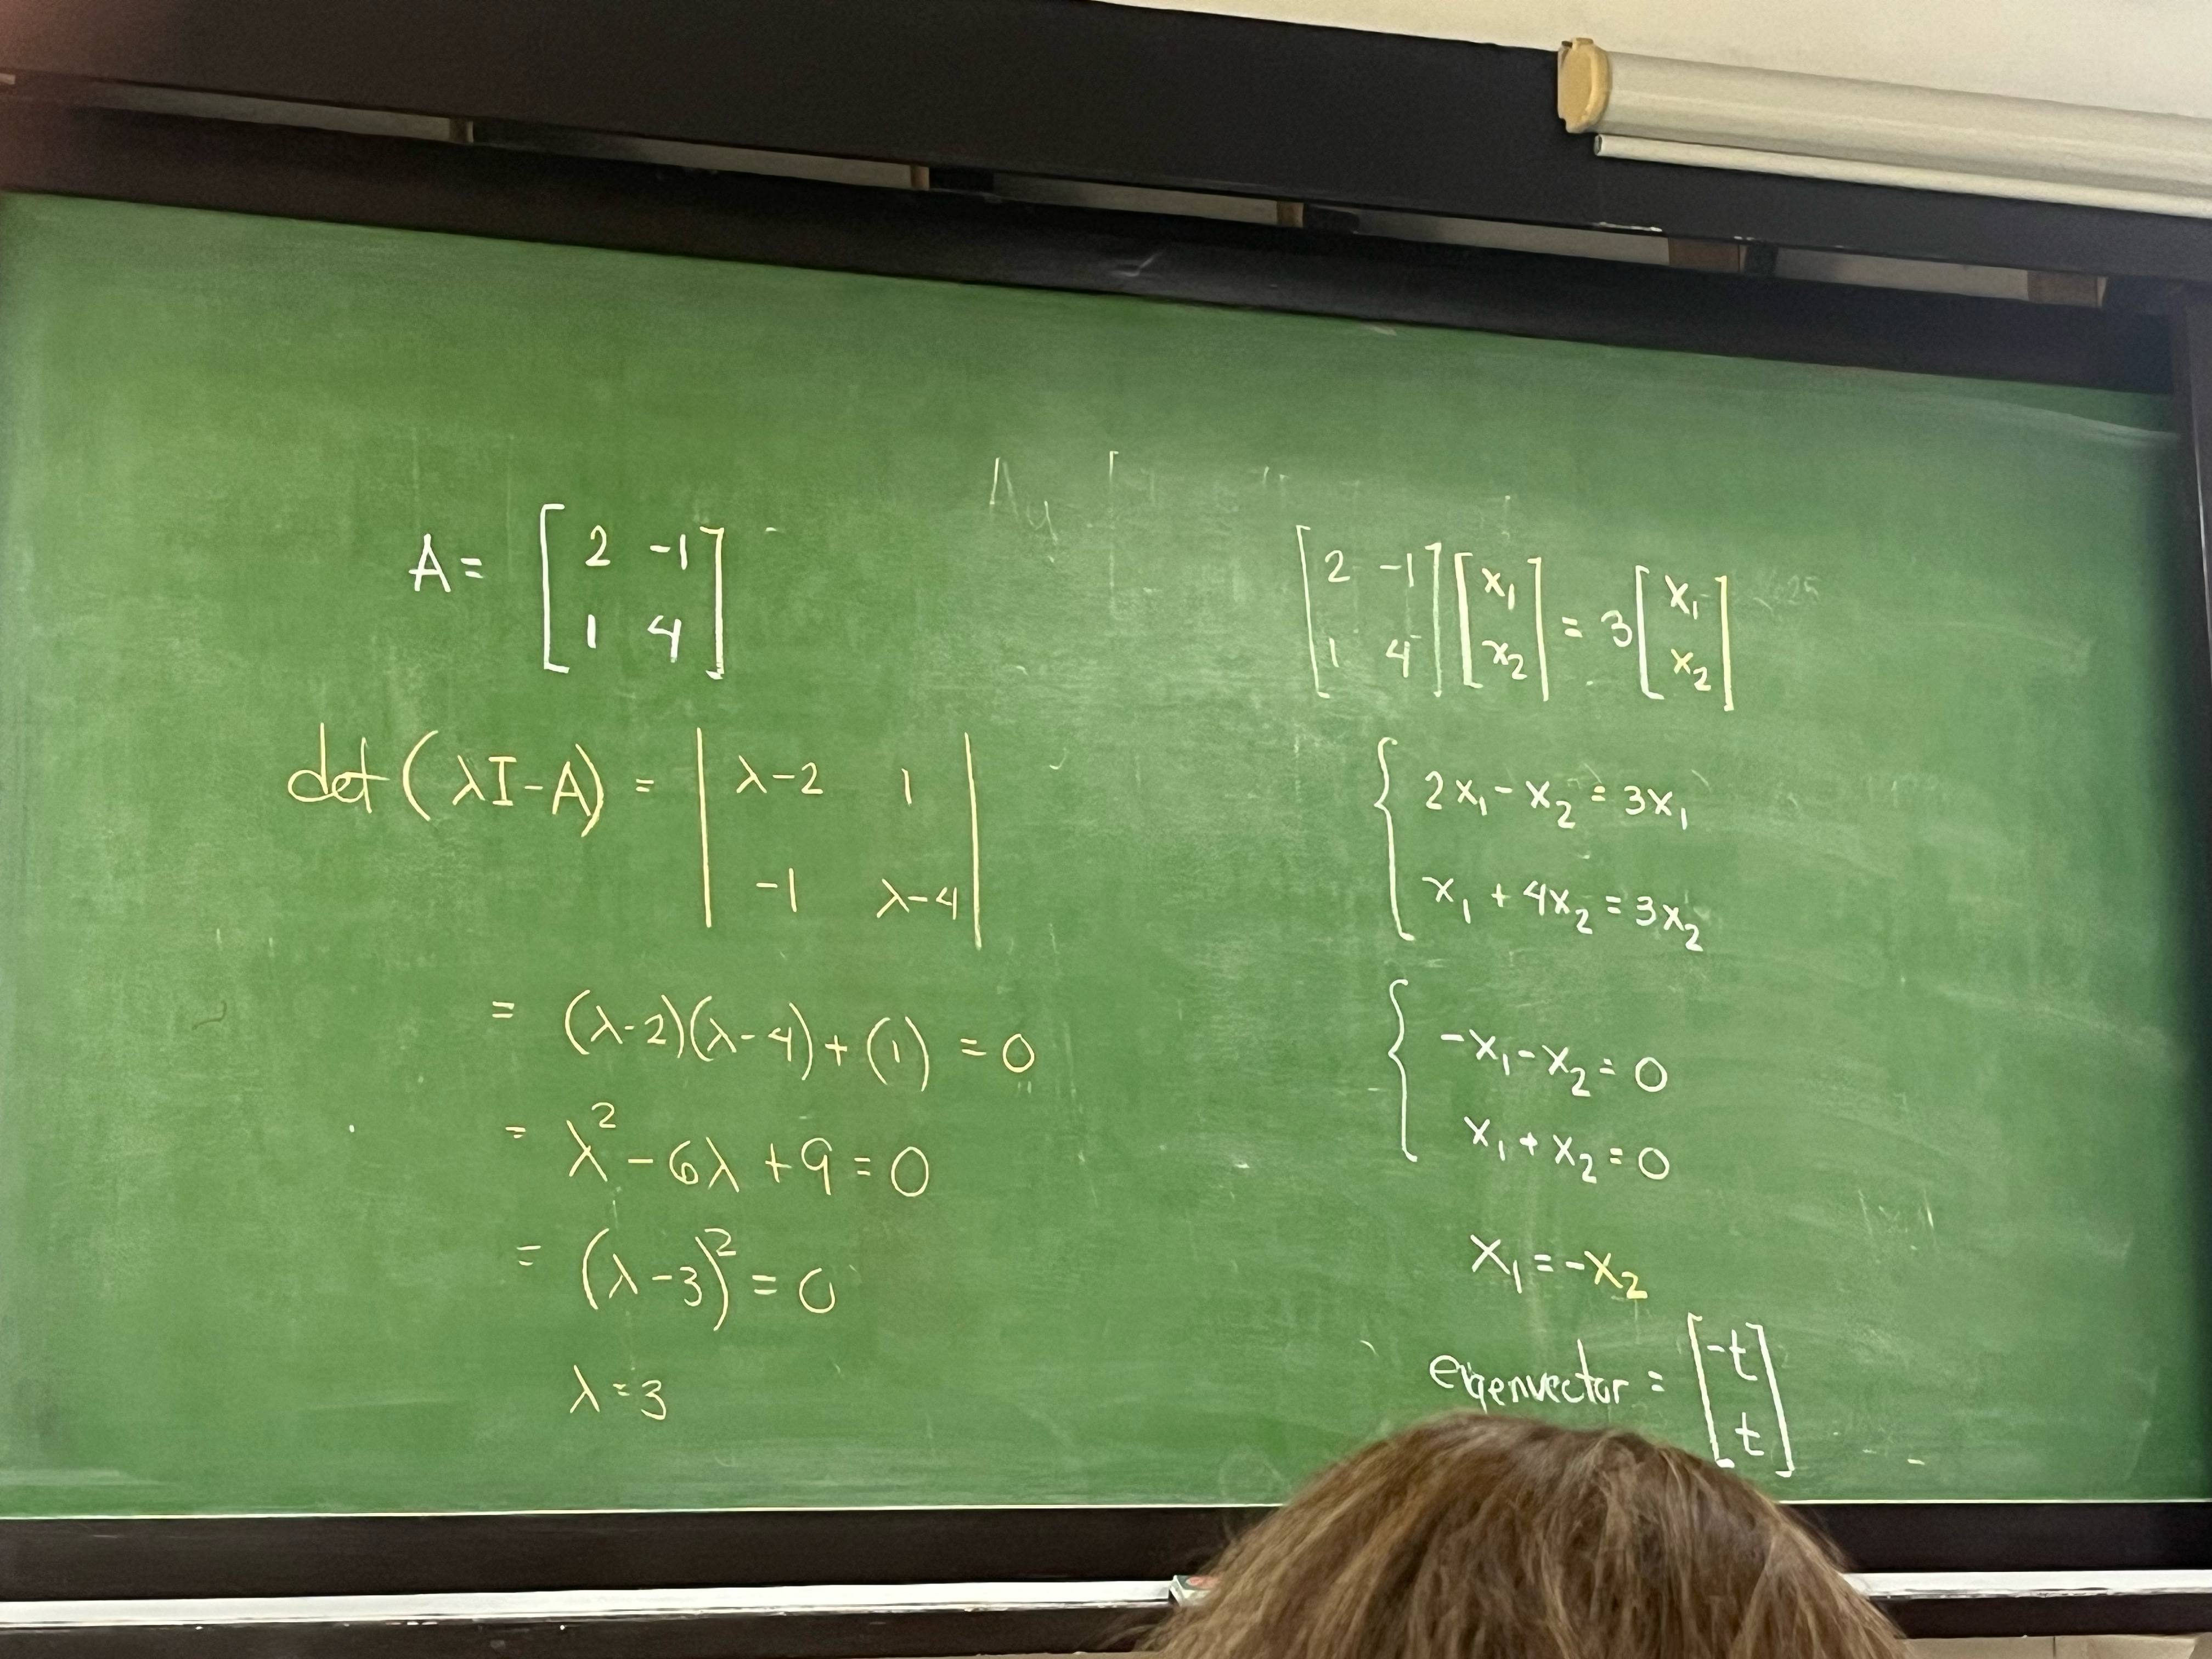 A = [ 2 -1
1 4 ]
det (λI-A) = | λ-2 1
-1 λ-4 |
= (λ-2)(λ-4) + (1) = 0
= λ² - 6λ + 9 = 0
= (λ-3)² = 0
λ = 3
[ 2 -1 ] [ x₁ ] = 3 [ x₁ ]
[ 1 4 ] [ x₂ ] [ x₂ ]
{ 2x₁ - x₂ = 3x₁
x₁ + 4x₂ = 3x₂
{ -x₁ - x₂ = 0
x₁ + x₂ = 0
x₁ = -x₂
eigenvector = [ -t
t ]